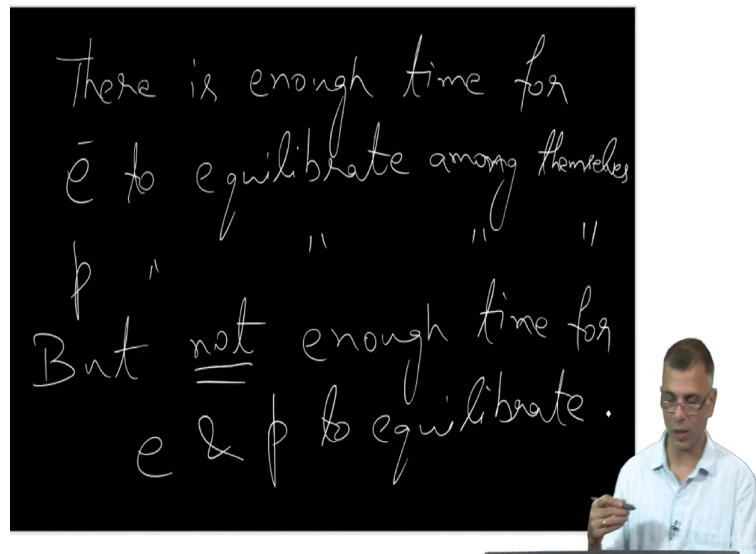 There is enough time for
ē to equilibrate among themselves
p " " " "
But not enough time for
e & p to equilibrate.